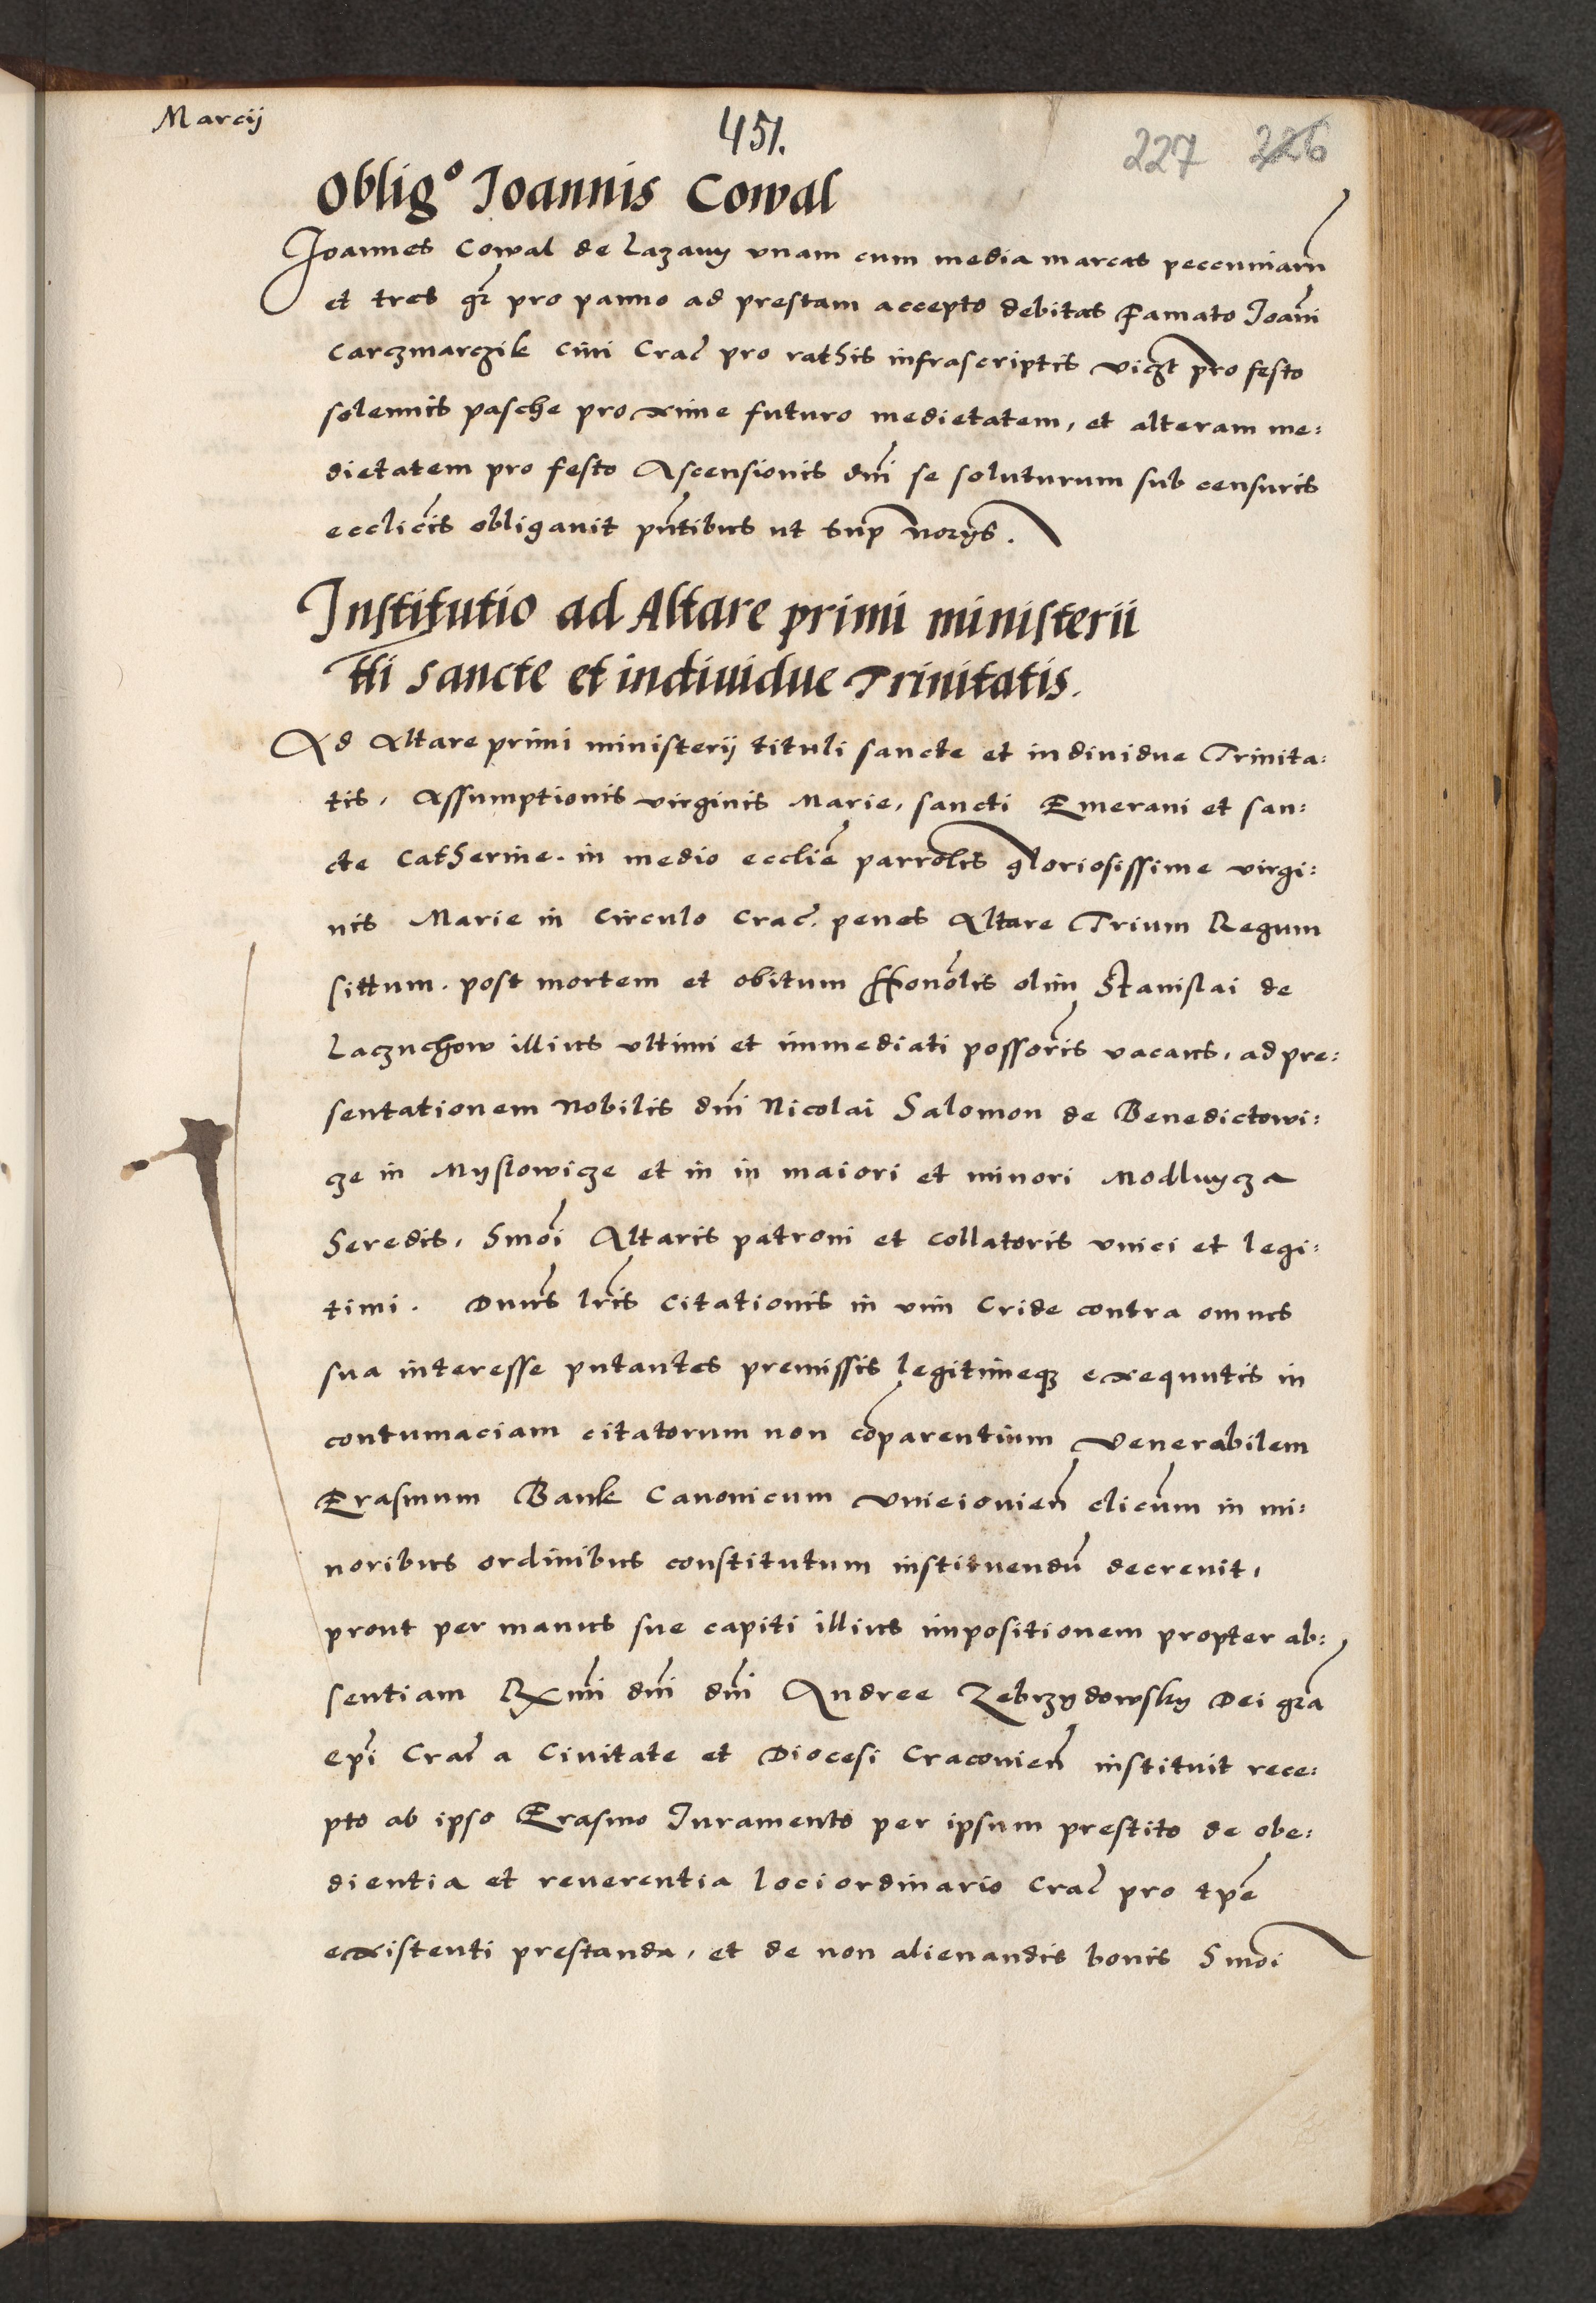 Marcij
451.
227 226
Obligo Joannis Cowal
Joannes Cowal de Lazany vnam cum media marcas peccuniarū
et tres gr̄ pro panno ad prestam accepto debitas Famato Joāni
Carczmarczik ciui Crac̄ pro rathis infrascriptis vicz̄t pro festo
solennis pasche proxime futuro medietatem, et alteram me:
dietatem pro festo Ascensionis dn̄i se soluturum sub censuris
eccliĉis obligauit pn̄tibus ut sup̄ norys.
Institutio ad Altare primi ministerii
tti sancte et indiuidue Trinitatis.
Ad Altare primi ministerij tituli sancte et indiuidue Trinita:
tis, Assumptionis virginis Marie, sancti Emerani et san:
cte Catherine. in medio eccliē parrolis gloriosissime virgi:
nis Marie in Circulo Crac̄. penes Altare Trium Regum
sittum. post mortem et obitum Honōlis olim Stanislai de
Laczuchow illius vltimi et immediati possōris vacans, ad pre:
sentationem Nobilis dn̄i Nicolai Salomon de Benedictowi:
cze in Myslowicze et in in maiori et minori Modlnycza
heredis, hmōi Altaris patroni et collatoris vnici et legi:
timi. Dnūs lr̄is citationis in vim Cride contra omnes
sua interesse putantes premissis legitimeq̄ exequutis in
contumaciam citatorum non cōparentium Venerabilem
Erasmum Bank Canonicum Vnieiouien̄ clicūm in mi:
noribus ordinibus constitutum instituendū decreuit,
prout per manus sue capiti illius impositionem propter ab:
sentiam Rx̄mi dn̄i dn̄i Andree Zebrzydowsky Dei gr̄a
ep̄i Crac̄ a Ciuitate et Diocesi Craconien̄ instituit rece:
pto ab ipso Erasmo Juramento per ipsum prestito de obe:
dientia et reuerentia loci ordinario Crac̄ pro tp̄e
existenti prestanda, et de non alienandis bonis hmōi